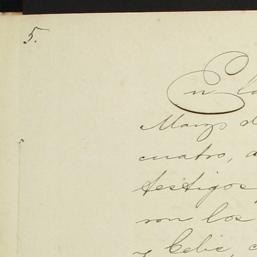 5.
En la
Marzo d
cuatro, a
testigos
ron los
y Celic, c